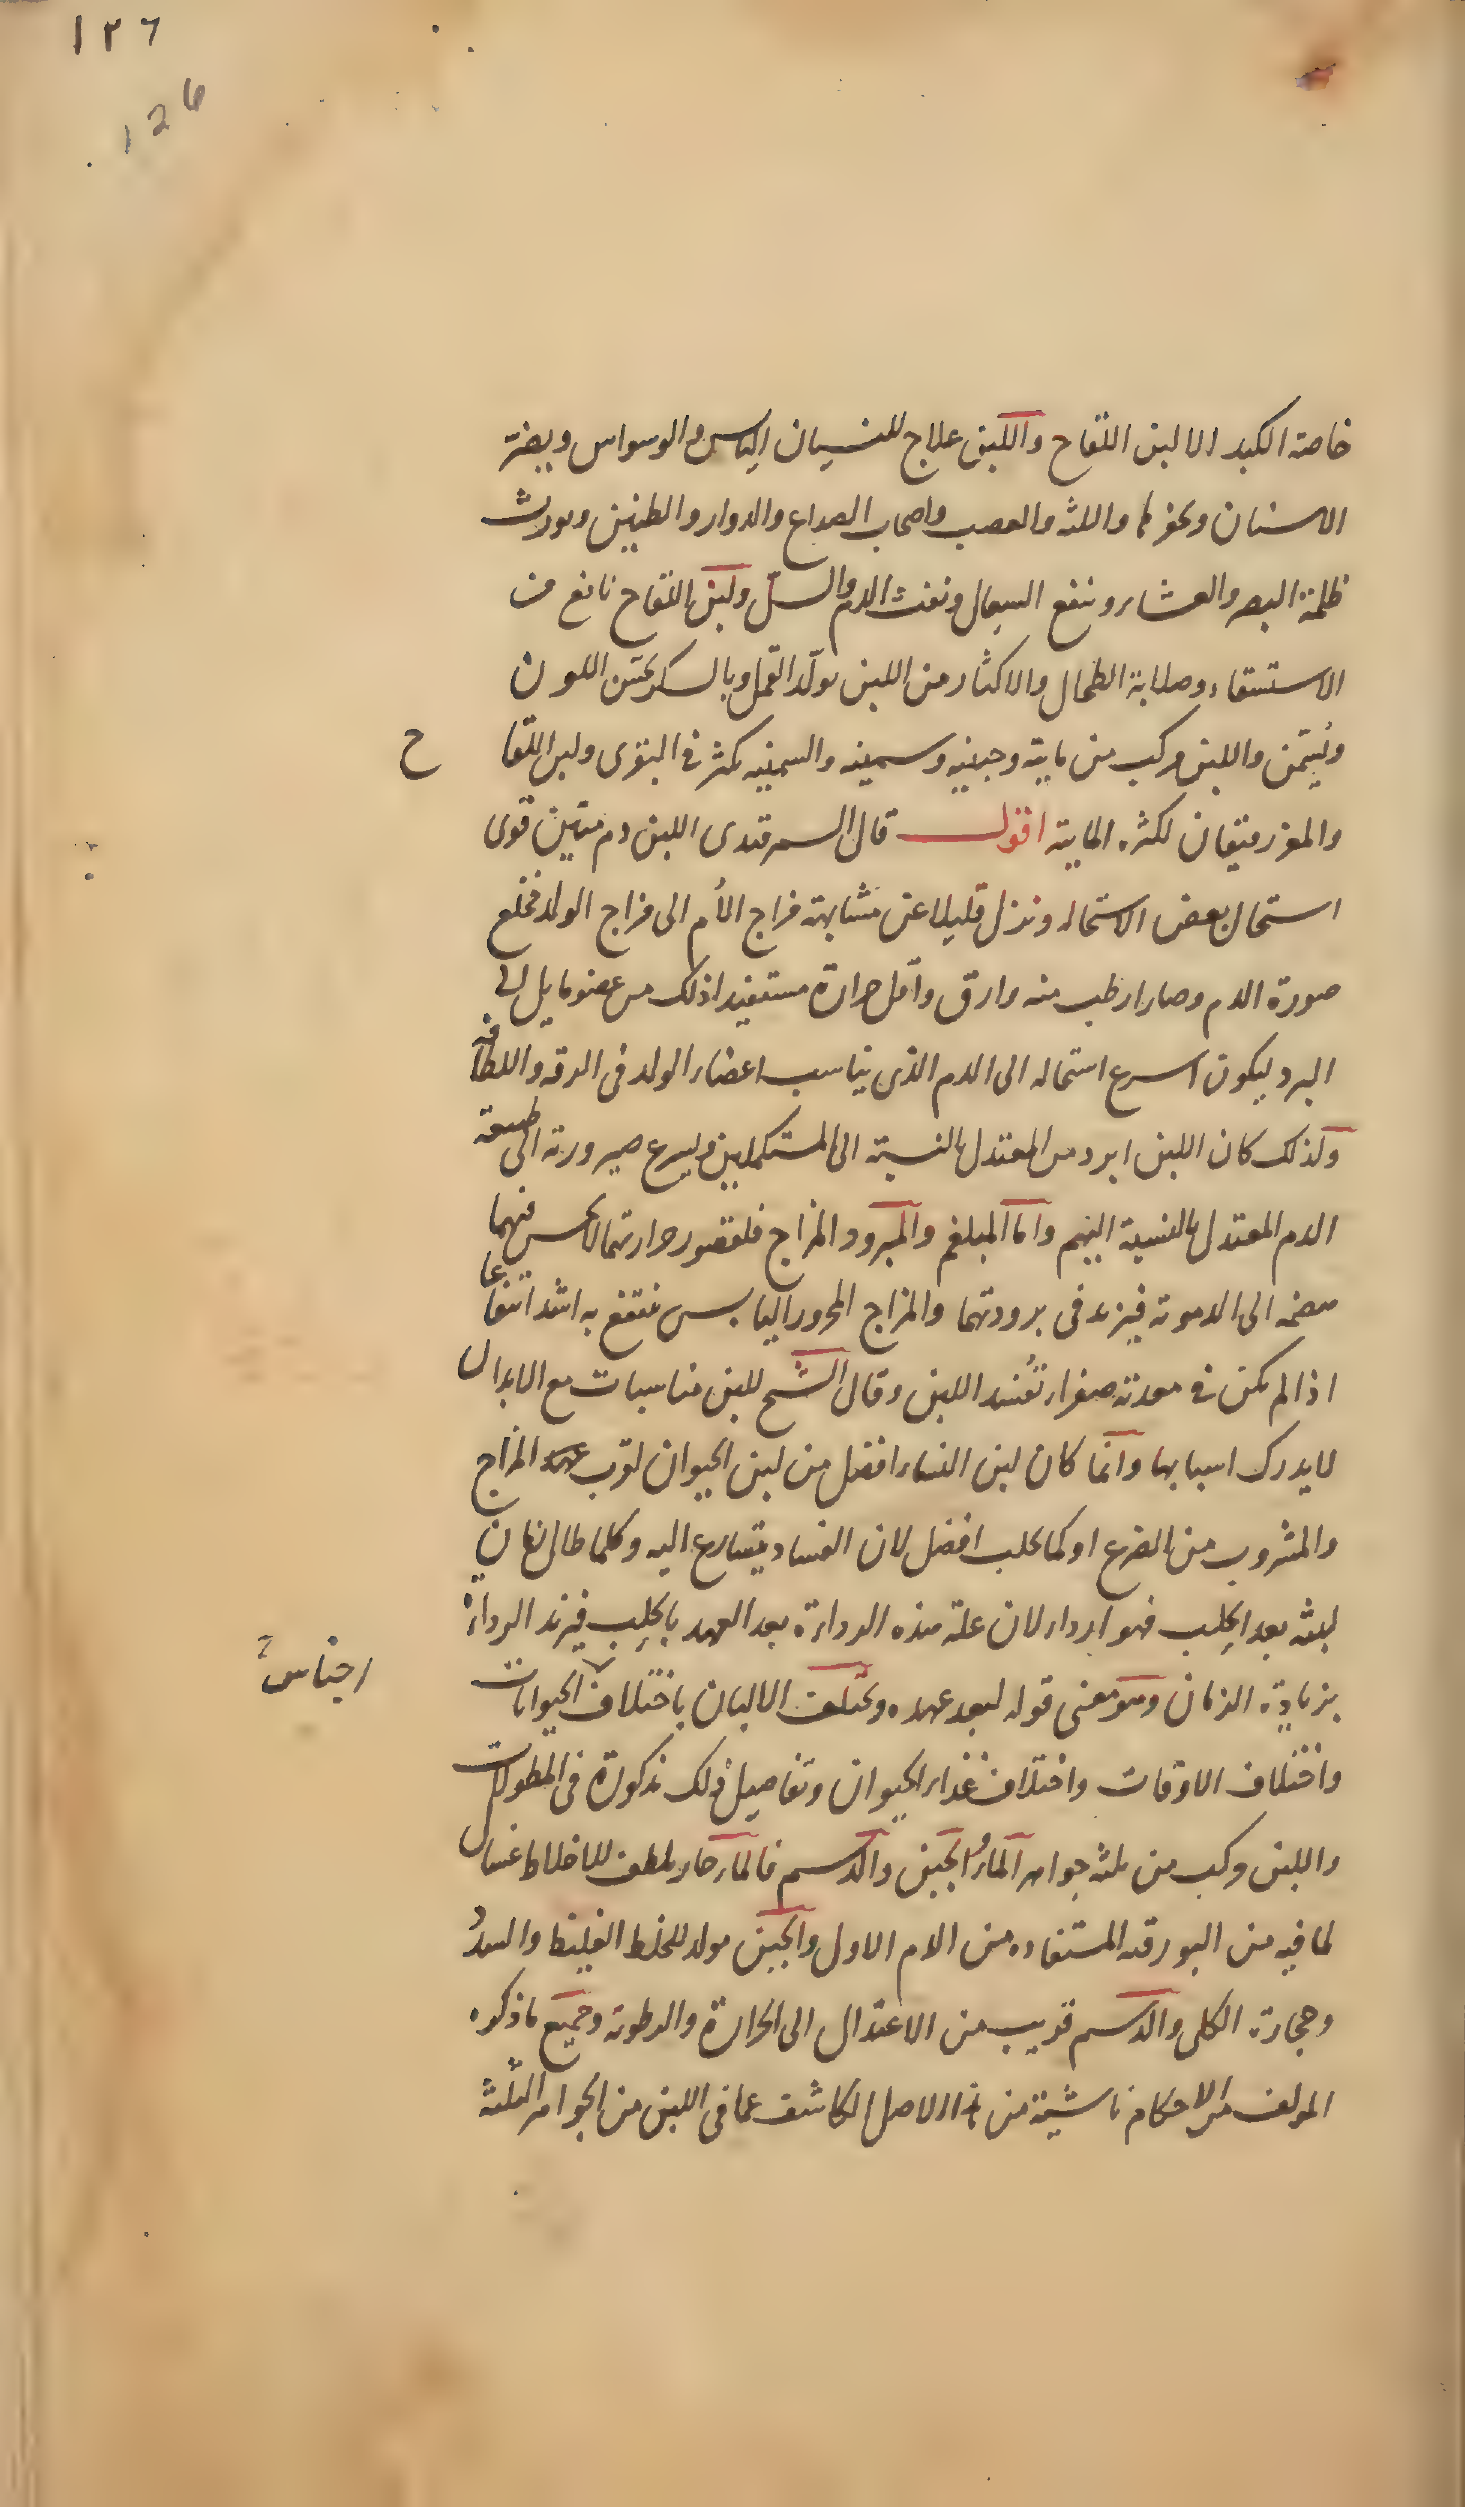 ١٢٦
126
خاصة الكبد الا لبن اللقاح واللبن علاج للنسيان اليابس والوسواس ويضر
الاسنان ويحفرها واللثه والعصب واصحاب الصداع والدوار والطنين ويورث
ظلمة البصر والعشاء وينفع السعال ونفث الدم والسل ولبن اللقاح نافع من
الاستسقاء وصلابة الطحال والاكثار من اللبن يولد القمل وبالسكر يحسن اللون
ويسمن واللبن مركب من مايية وجبنيه وسمنيه والسمنيه يكثر في البقرى ولبن اللقاح
والمعز رقيقان لكثرة المايية اقول قال السمرقندى اللبن دم متين قوى
استحال بعض الاستحاله ونزل قليلا عن مشابهة مزاج الأم الى مزاج الولد فخلع
صورة الدم وصار ارطب منه وارق واقل حرارة مستفيدا ذلك من عضو مايل الى
البرد ليكون اسرع استحاله الى الدم الذى يناسب اعضاء الولد فى الرقه واللطافه
ولذلك كان اللبن ابرد من المعتدل بالنسبة الى المستكملين ويسرع صيرورته الى طبيعة
الدم المعتدل بالنسبة اليهم واما المبلغم والمبرود المزاج فلقصور حرارتهما لا يحسن فيهما
هضمه الى الدموية فيزيد فى برودتهما والمزاج المحرور اليابس ينتفع به اشد انتفاعا
اذا لم يكن في معدته صفراء تفسد اللبن وقال الشيخ للبن مناسبات مع الابدال
لا يدرك اسبابها وانما كان لبن النساء افضل من لبن الحيوان لقرب عهد المزاج
والمشروب من الضرع او كما يحلب افضل لان الفساد يتسارع اليه وكلما طال زمان
لبثه بعد الحلب فهو اردا، لان علة هذه الرداءة بعد العهد بالحلب فيزيد الرداءة
بزيادة الزمان وهو معنى قوله لبعد عهده ويختلف الالبان باختلاف الحيوانات
اجناس
واختلاف الاوقات واختلاف غذاء الحيوان وتفاصيل ذلك مذكورة فى المطولات
واللبن مركب من ثلثه جواهر الماء والجبن والدسم فالماء حار يلطف للاخلاط غسال
لما فيه من البورقيه المستفاده من الام الاول والجبن مولد للخلط الغليظ والسدد
وحجارة الكلى والدسم قريب من الاعتدال الى الحرارة والرطوبة وجميع ما ذكره
المولف من الاحكام ناشية من هذا الاصل الكاشف عما فى اللبن من الجواهر الثلثة